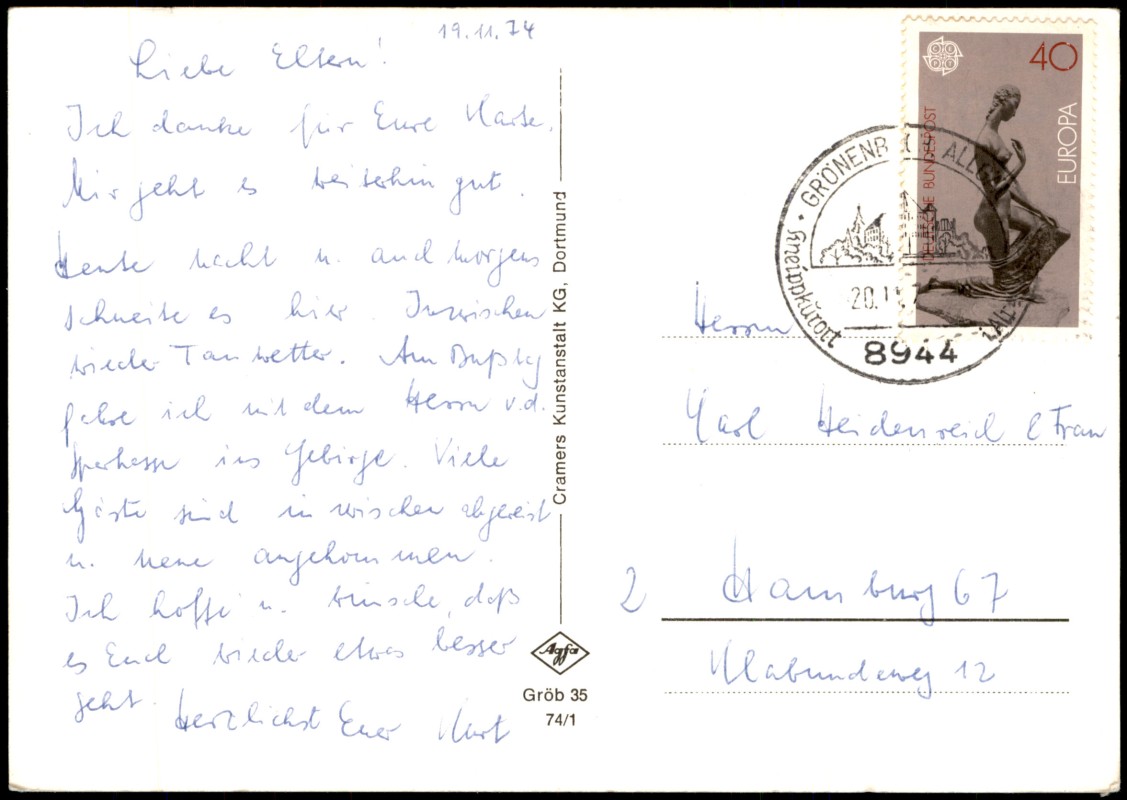 19.11.74
Liebe Eltern!
Ich danke für Eure Karte.
Mir geht es weiterhin gut.
Heute nacht u. auch morgens
schneite es hier. Inzwischen
wieder Tauwetter. Am Bußtag
fahre ich mit dem Herrn v.d.
Sparkasse ins Gebirge. Viele
Gäste sind inzwischen abgereist
u. neue angekommen.
Ich hoffe u. wünsche, daß
es Euch wieder etwas besser
geht.
Herzlichst Euer Kurt
Cramers Kunstanstalt KG, Dortmund
Agfa
Gröb 35
74/1
40
DEUTSCHE BUNDESPOST
EUROPA
GRÖNENB
Kneippkurort
20.11.7
8944
Herrn
Karl Heidenreich & Frau
2 Hamburg 67
Klabundeweg 12